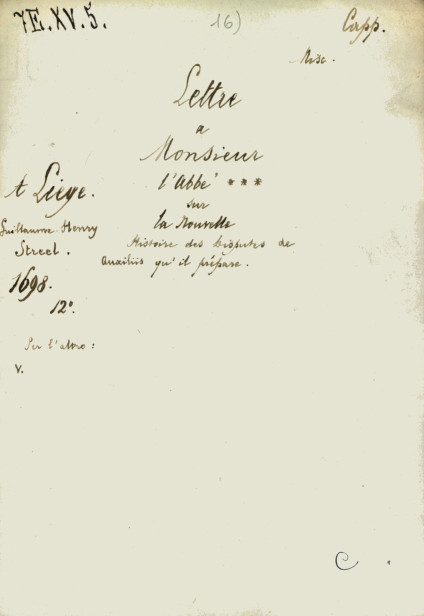 7E.XV.5.
16)
Capp.
Misc.
Lettre
a
Monsieur
l'Abbé ***
sur
la Nouvelle
Histoire des disputes de
auxiliis qu'il prépare.
A Liege.
Guillaume Henry
Streel.
1698.
12°.
Per l'altro:
V.
C